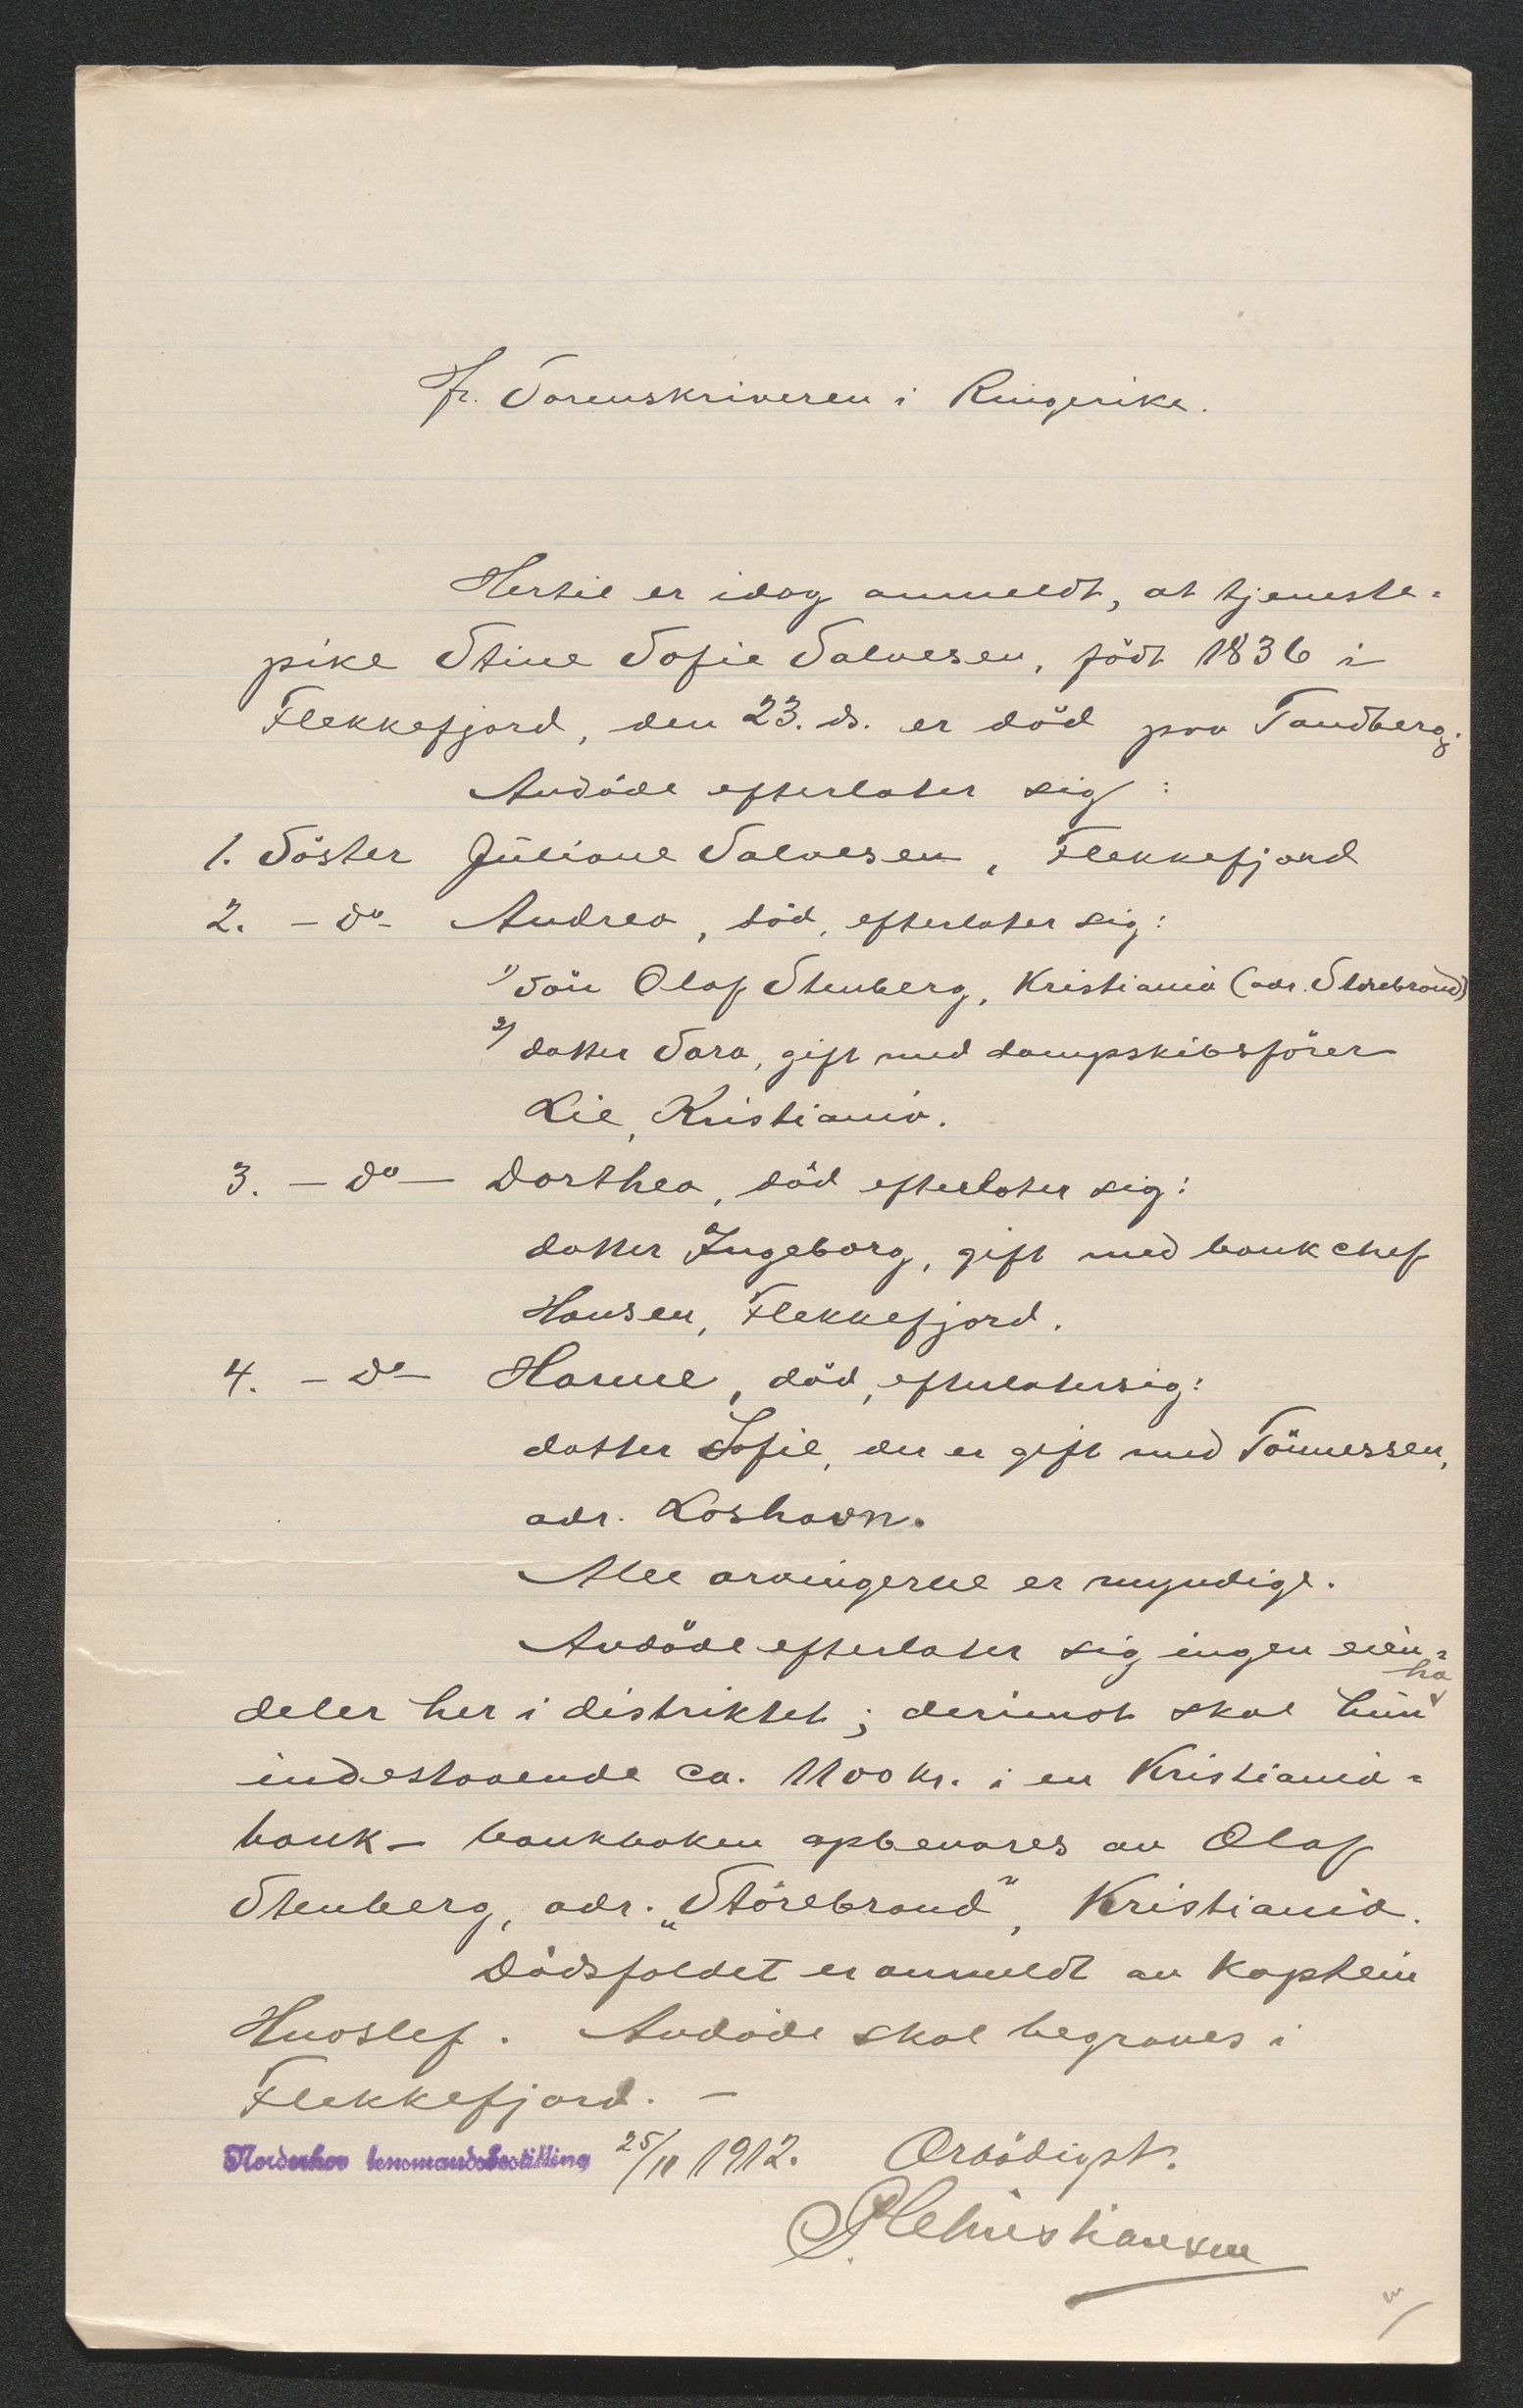 Hr. Sorenskriveren i Ringerike.
Hertil er idag anmeldt, at tjeneste-
pike Stine Sofie Salvesen, født 1836 i
Flekkefjord, den 23. ds. er død paa Tandberg.
Avdøde efterlater sig:
1. Søster Juliane Salvesen, Flekkefjord
2. - do - Andrea, død, efterlater sig:
1) søn Olaf Stenberg, Kristiania (adr. Storebrand)
2) datter Sara, gift med dampskibsfører
Lie, Kristiania.
3. - do - Dorthea, død efterlater sig:
datter Ingeborg, gift med bankchef
Hansen, Flekkefjord.
4. - do - Hanne, død, efterlater sig:
datter Sofie, der er gift med Tönnessen,
adr. Loshavn.
Alle arvingerne er myndige.
Avdøde efterlater sig ingen eien-
deler her i distriktet; derimot skal hun ha
indestaaende ca. 1100 kr. i en Kristiania-
bank - bankboken opbevares av Olaf
Stenberg, adr. "Storebrand", Kristiania.
Dødsfaldet er anmeldt av kaptein
Huoslef. Avdøde skal begraves i
Flekkefjord. -
Norderhov lensmandsbestilling 25/11 1912. Ærbødigst.
P. Christiansen